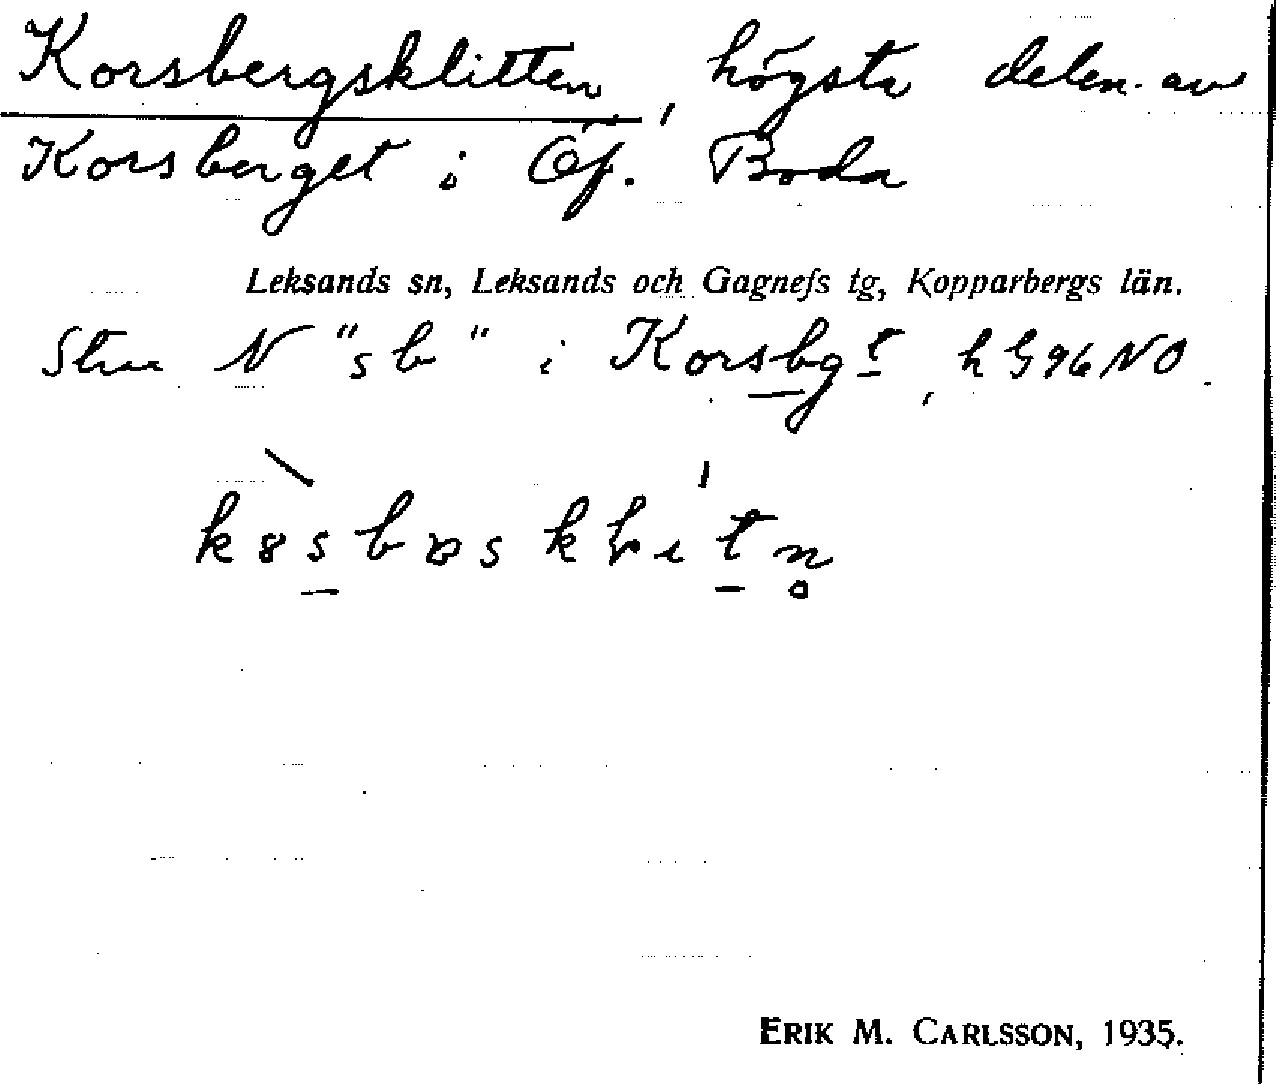 Korsbergsklitten, högsta delen av
Korsberget i Öf. Boda
Leksands sn, Leksands och Gagnefs tg, Kopparbergs län.
Strax N "sb" i Korsbgt, h G96 NO
ERIK M. CARLSSON, 1935.